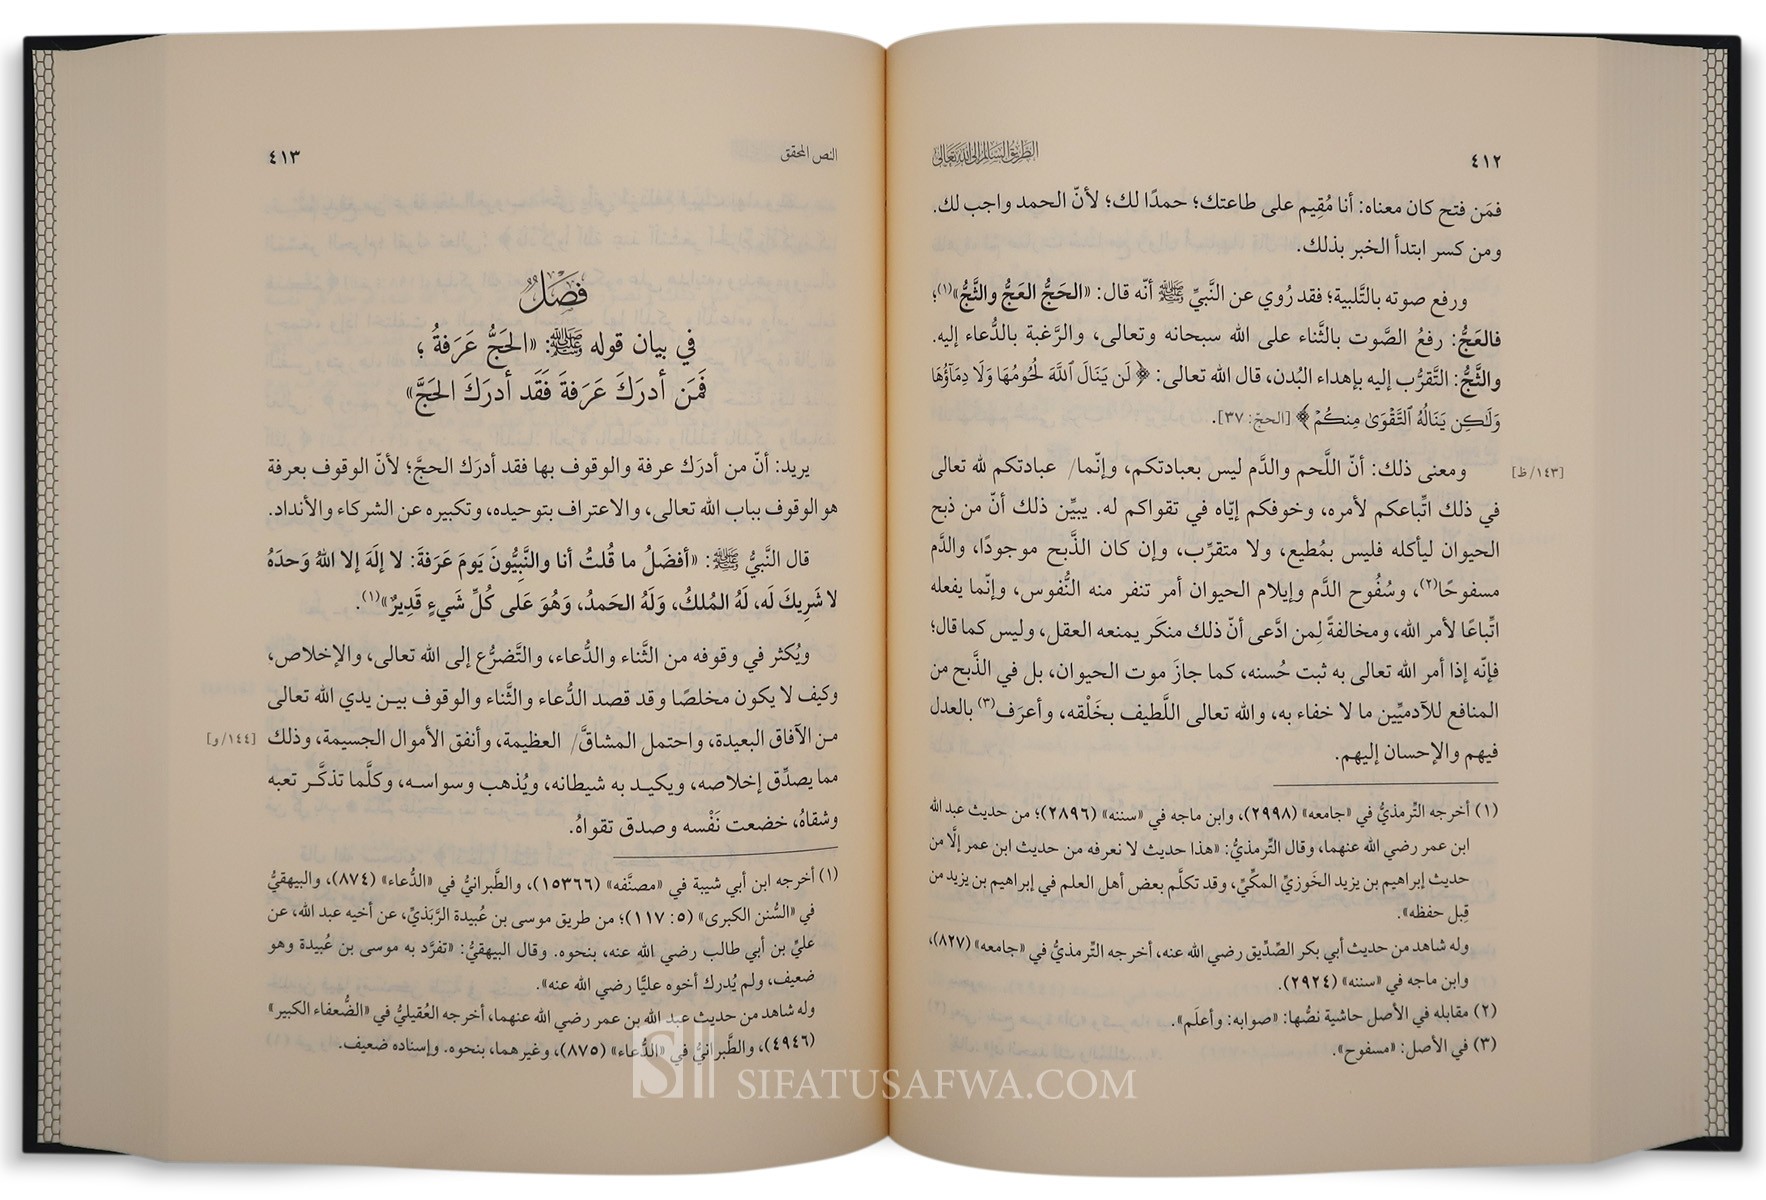 ٤١٢
الطريق السالم إلى الله تعالى
فمَن فتح كان معناه: أنا مُقِيم على طاعتك؛ حمدًا لك؛ لأنّ الحمد واجب لك.
ومن كسر ابتدأ الخبر بذلك.
ورفع صوته بالتَّلبية؛ فقد رُوي عن النَّبيِّ ﷺ أنّه قال: «الحَجُّ العَجُّ والثَّجُّ»(١)؛
فالعَجُّ: رفعُ الصَّوت بالثَّناء على الله سبحانه وتعالى، والرَّغبة بالدُّعاء إليه.
والثَّجُّ: التَّقرُّب إليه بإهداء البُدن، قال الله تعالى: ﴿لَن يَنَالَ ٱللَّهَ لُحُومُهَا وَلَا دِمَآؤُهَا
وَلَـٰكِن يَنَالُهُ ٱلتَّقْوَىٰ مِنكُمْ﴾ [الحج: ٣٧].
ومعنى ذلك: أنّ اللَّحم والدَّم ليس بعبادتكم، وإنّما/ عبادتكم لله تعالى
[١٤٣/ظ]
في ذلك اتِّباعكم لأمره، وخوفكم إيّاه في تقواكم له. يبيِّن ذلك أنّ من ذبح
الحيوان ليأكله فليس بمُطيع، ولا متقرِّب، وإن كان الذَّبح موجودًا، والدَّم
مسفوحًا(٢)، وسُفُوح الدَّم وإيلام الحيوان أمر تنفر منه النُّفوس، وإنّما يفعله
اتِّباعًا لأمر الله، ومخالفةً لِمن ادَّعى أنّ ذلك منكَر يمنعه العقل، وليس كما قال؛
فإنّه إذا أمر الله تعالى به ثبت حُسنه، كما جازَ موت الحيوان، بل في الذَّبح من
المنافع للآدميِّين ما لا خفاء به، والله تعالى اللَّطيف بخَلْقه، وأعرَف(٣) بالعدل
فيهم والإحسان إليهم.
(١) أخرجه التِّرمذيُّ في «جامعه» (٢٩٩٨)، وابن ماجه في «سننه» (٢٨٩٦)؛ من حديث عبد الله
ابن عمر رضي الله عنهما، وقال التِّرمذيُّ: «هذا حديث لا نعرفه من حديث ابن عمر إلَّا من
حديث إبراهيم بن يزيد الخَوزيِّ المكِّيِّ، وقد تكلَّم بعض أهل العلم في إبراهيم بن يزيد من
قِبل حفظه».
وله شاهد من حديث أبي بكر الصِّدِّيق رضي الله عنه، أخرجه التِّرمذيُّ في «جامعه» (٨٢٧)،
وابن ماجه في «سننه» (٢٩٢٤).
(٢) مقابله في الأصل حاشية نصُّها: «صوابه: وأعلَم».
(٣) في الأصل: «مسفوح».
النص المحقق
٤١٣
فَصْلٌ
في بيان قوله ﷺ: «الحَجُّ عَرَفةُ؛
فَمَن أدرَكَ عَرَفةَ فَقَد أدرَكَ الحَجَّ»
يريد: أنّ من أدرَك عرفة والوقوف بها فقد أدرَك الحجَّ؛ لأنّ الوقوف بعرفة
هو الوقوف بباب الله تعالى، والاعتراف بتوحيده، وتكبيره عن الشركاء والأنداد.
قال النَّبيُّ ﷺ: «أفضَلُ ما قُلتُ أنا والنَّبِيُّونَ يَومَ عَرَفةَ: لا إلَهَ إلا اللهُ وَحدَهُ
لا شَرِيكَ لَه، لَهُ المُلكُ، وَلَهُ الحَمدُ، وَهُوَ عَلى كُلِّ شَيءٍ قَدِيرٌ»(١).
ويُكثر في وقوفه من الثَّناء والدُّعاء، والتَّضرُّع إلى الله تعالى، والإخلاص،
وكيف لا يكون مخلصًا وقد قصد الدُّعاء والثَّناء والوقوف بين يدي الله تعالى
من الآفاق البعيدة، واحتمل المشاقَّ/ العظيمة، وأنفق الأموال الجسيمة، وذلك
[١٤٤/و]
مما يصدِّق إخلاصه، ويكيد به شيطانه، ويُذهب وسواسه، وكلَّما تذكَّر تعبه
وشقاهُ، خضعت نَفْسه وصدق تقواهُ.
(١) أخرجه ابن أبي شيبة في «مصنَّفه» (١٥٣٦٦)، والطَّبرانيُّ في «الدُّعاء» (٨٧٤)، والبيهقيُّ
في «السُّنن الكبرى» (٥: ١١٧)؛ من طريق موسى بن عُبيدة الرَّبَذيِّ، عن أخيه عبد الله، عن
عليِّ بن أبي طالب رضي الله عنه، بنحوه. وقال البيهقيُّ: «تفرَّد به موسى بن عُبيدة وهو
ضعيف، ولم يُدرك أخوه عليًّا رضي الله عنه».
وله شاهد من حديث عبد الله بن عمر رضي الله عنهما، أخرجه العُقيليُّ في «الضُّعفاء الكبير»
(٤٩٤٦)، والطَّبرانيُّ في «الدُّعاء» (٨٧٥)، وغيرهما، بنحوه. وإسناده ضعيف.
SIFATUSAFWA.COM